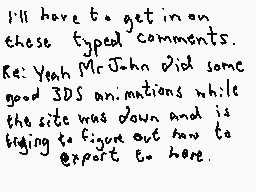 I'll have to get in on
these typed comments.
Re: Yeah Mr John did some
good 3DS animations while
the site was down and is
trying to figure out how to
export to here.